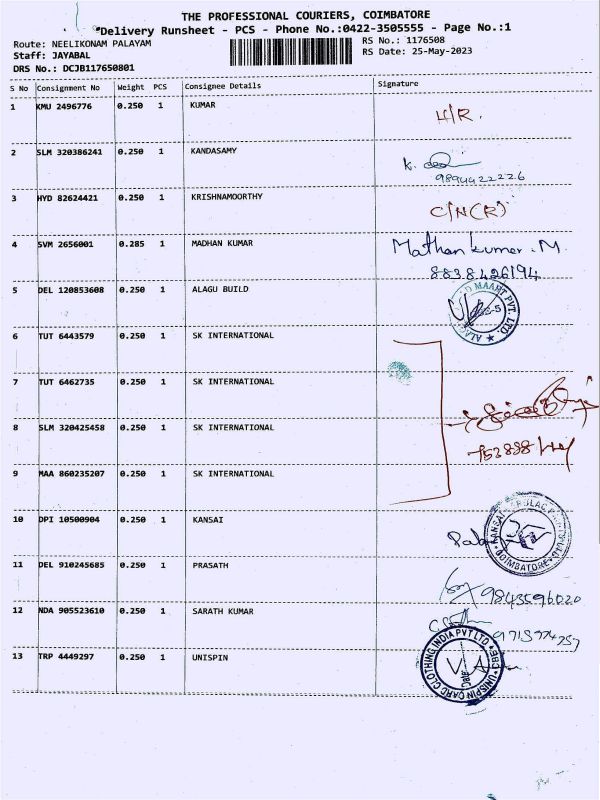 THE PROFESSIONAL COURIERS, COIMBATORE
*Delivery Runsheet - PCS - Phone No.:0422-3505555 - Page No.:1
Route: NEELIKONAM PALAYAM
RS No.: 1176508
Staff: JAYABAL
RS Date: 25-May-2023
DRS No.: DCJB117650801
S No Consignment No Weight PCS Consignee Details Signature
1 KMU 2496776 0.250 1 KUMAR H/R.
2 SLM 320386241 0.250 1 KANDASAMY K.
9894422226
3 HYD 82624421 0.250 1 KRISHNAMOORTHY C/N(R)
4 SVM 2656001 0.285 1 MADHAN KUMAR Mathan kumar.M
8838426194
5 DEL 120853608 0.250 1 ALAGU BUILD
MAART PVT. LTD.
6 TUT 6443579 0.250 1 SK INTERNATIONAL
7 TUT 6462735 0.250 1 SK INTERNATIONAL
8 SLM 320425458 0.250 1 SK INTERNATIONAL
9 MAA 860235207 0.250 1 SK INTERNATIONAL
10 DPI 10500904 0.250 1 KANSAI
KANSAI
COIMBATORE
11 DEL 910245685 0.250 1 PRASATH
9843596020
12 NDA 905523610 0.250 1 SARATH KUMAR
13 TRP 4449297 0.250 1 UNISPIN
CLOTHING INDIA PVT LTD